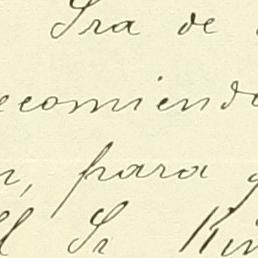 Sra de
ecomiendo
n, para
El Sr Kin